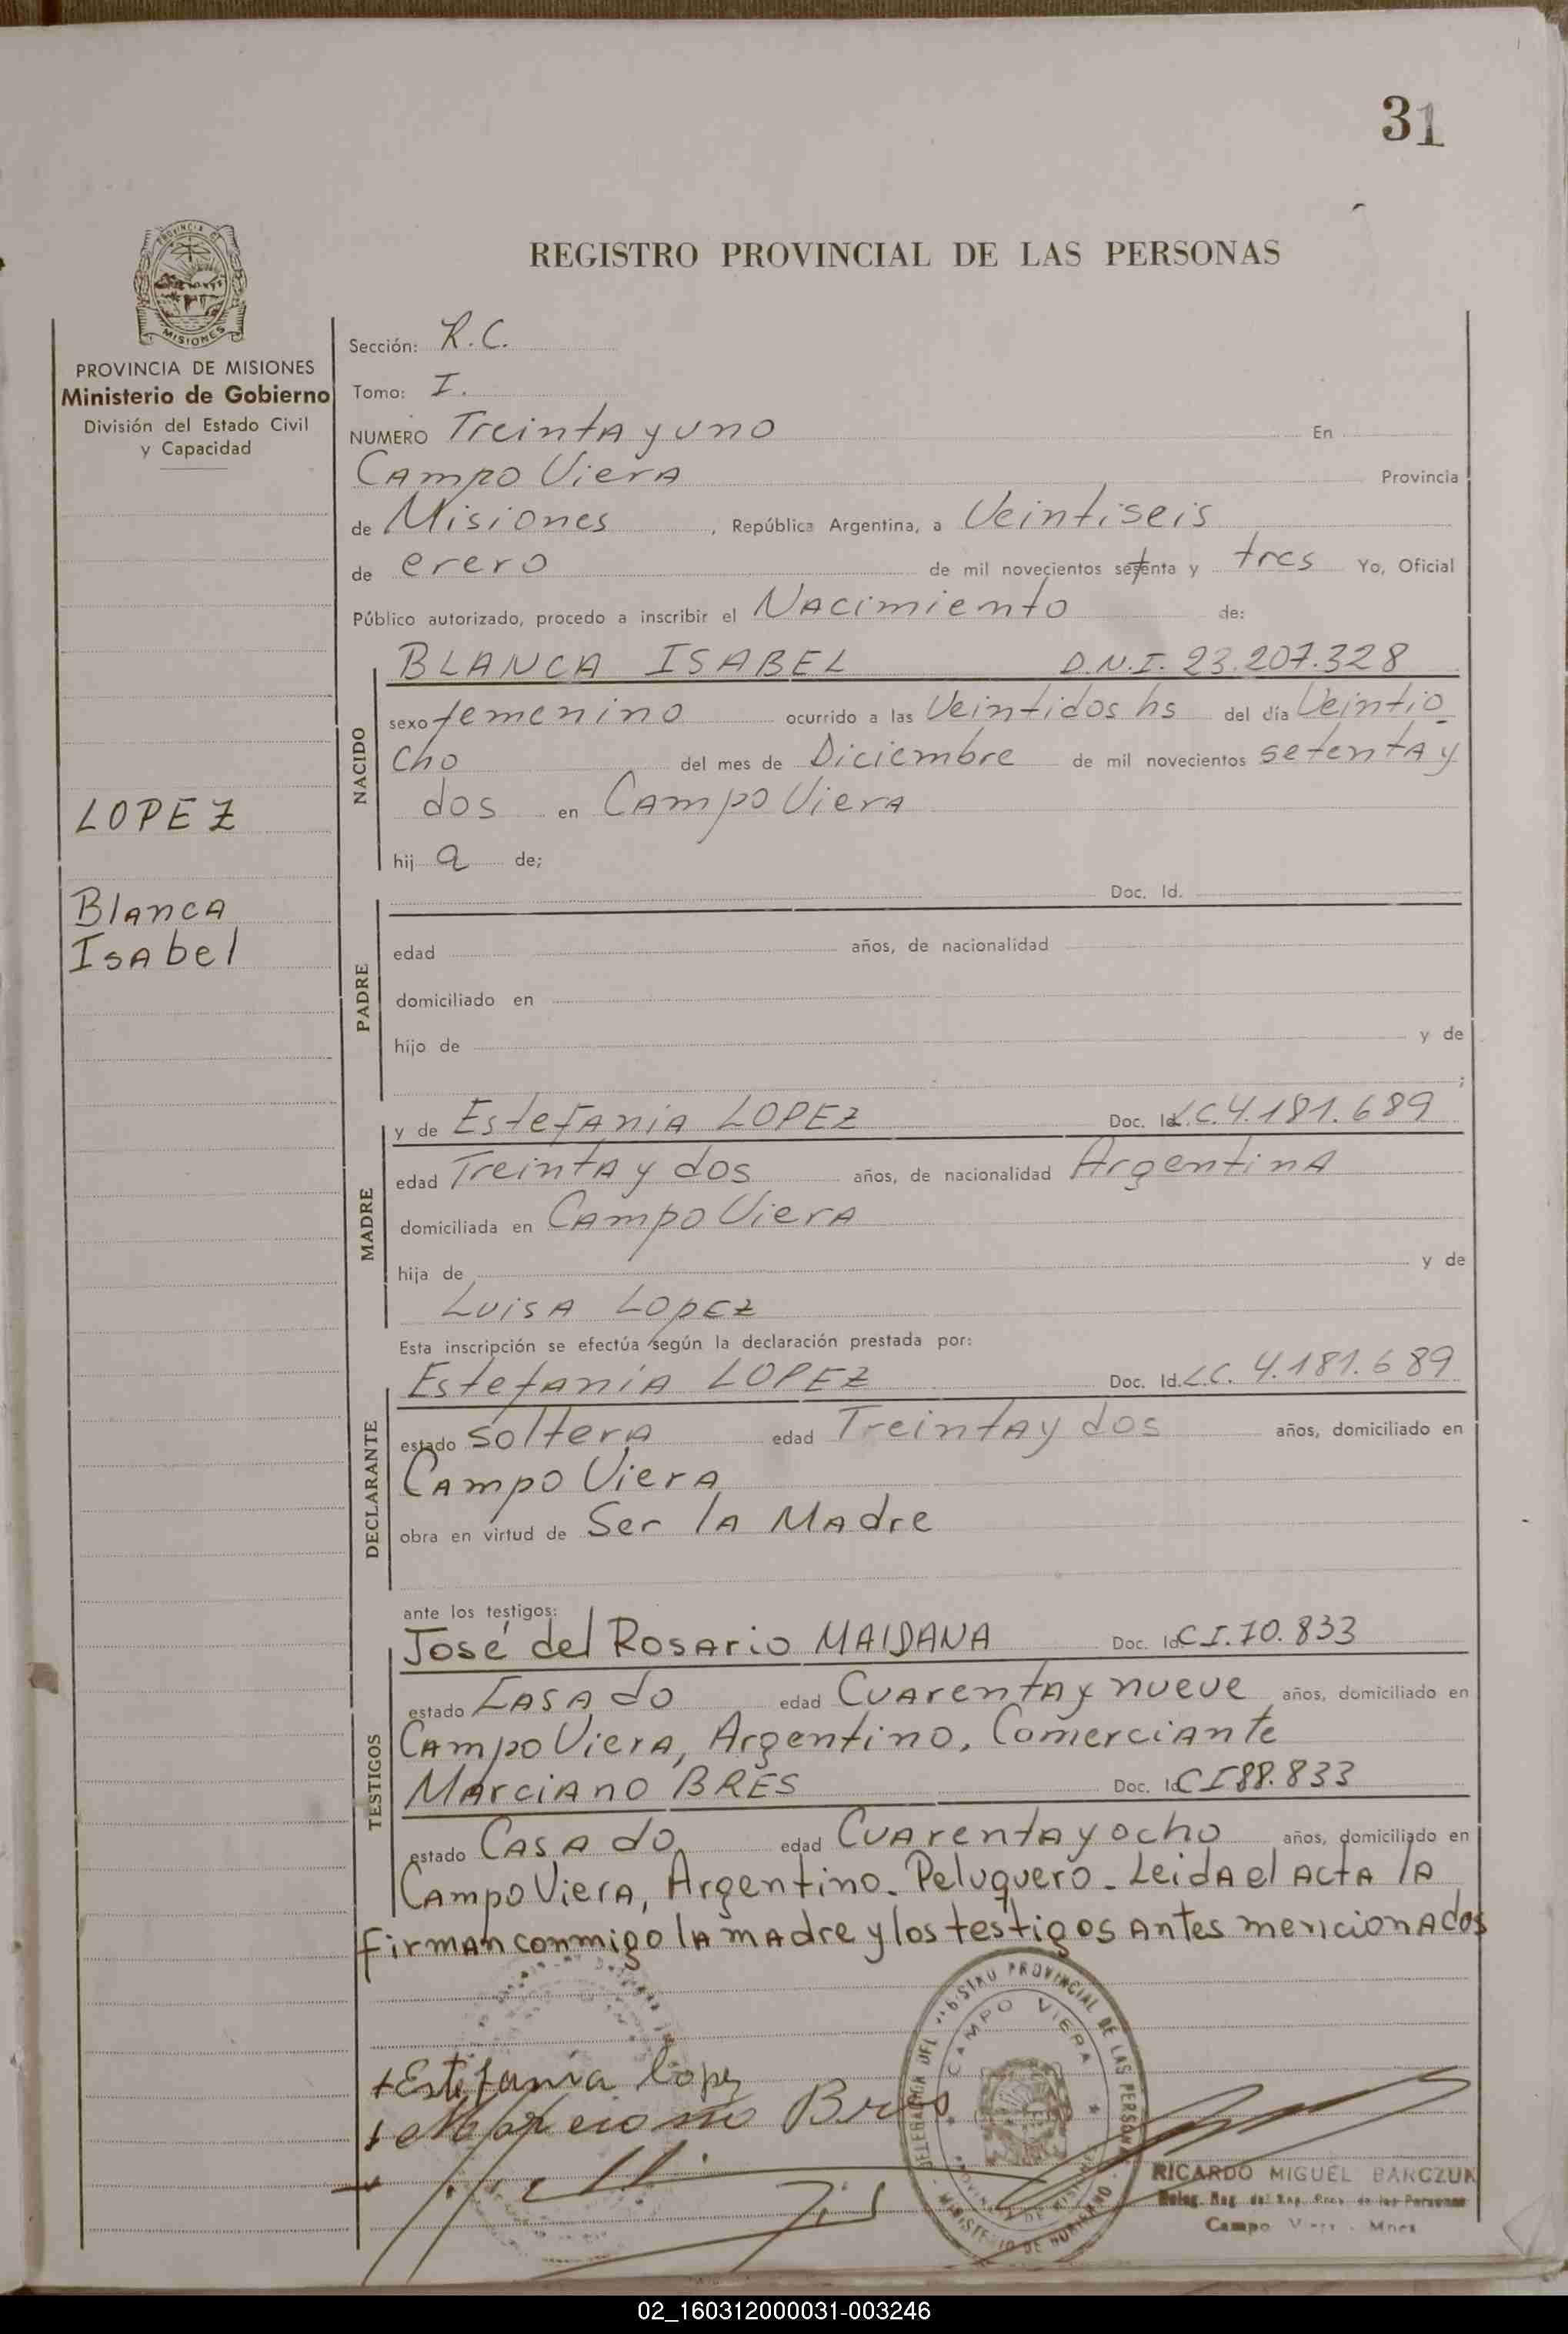 31
PROVINCIA DE
MISIONES
PROVINCIA DE MISIONES
Ministerio de Gobierno
División del Estado Civil
y Capacidad
LOPEZ
Blanca
Isabel
REGISTRO PROVINCIAL DE LAS PERSONAS
Sección: R.C.
Tomo: I.
NUMERO Treinta y uno En
Campo Viera Provincia
de Misiones, República Argentina, a Veintiseis
de erero de mil novecientos setenta y tres Yo, Oficial
Público autorizado, procedo a inscribir el Nacimiento de:
NACIDO
BLANCA ISABEL D.N.I. 23.207.328
sexo femenino ocurrido a las Veintidos hs del día Veintio
cho del mes de Diciembre de mil novecientos setenta y
dos en Campo Viera
hij a de;
PADRE
Doc. Id.
edad años, de nacionalidad
domiciliado en
hijo de y de
;
MADRE
y de Estefania LOPEZ Doc. Id. L.C. 4.181.689
edad Treinta y dos años, de nacionalidad Argentina
domiciliada en Campo Viera
hija de y de
Luisa Lopez
Esta inscripción se efectúa según la declaración prestada por:
DECLARANTE
Estefania LOPEZ Doc. Id. L.C. 4.181.689
estado soltera edad Treinta y dos años, domiciliado en
Campo Viera
obra en virtud de Ser la Madre
ante los testigos:
TESTIGOS
José del Rosario MAIDANA Doc. Id. C.I. 70.833
estado Casado edad Cuarenta y nueve años, domiciliado en
Campo Viera, Argentino, Comerciante
Marciano BRES Doc. Id. C I 88.833
estado Casado edad Cuarenta y ocho años, domiciliado en
Campo Viera, Argentino. Peluquero. Leida el acta la
firman conmigo la madre y los testigos antes mencionados
+ Estefania Lopez
+ Marciano Bres
DELEGACION DEL REGISTRO PROVINCIAL DE LAS PERSONAS
CAMPO VIERA
PROVINCIA DE MISIONES
MINISTERIO DE GOBIERNO
RICARDO MIGUEL BARCZUK
Campo Viera - Mnes
02_160312000031-003246